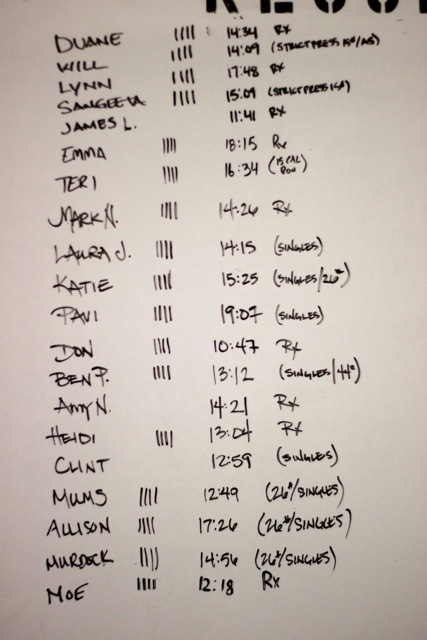 DUANE |||| 14:34 Rx
WILL |||| 14:09 (STRICT PRESS 15#/AB)
LYNN |||| 17:48 Rx
SANGEETA |||| 15:09 (STRICT PRESS 15#)
JAMES L. 11:41 Rx
EMMA |||| 18:15 Rx
TERI |||| 16:34 (15 CAL ROW)
MARK N. |||| 14:26 Rx
LAURA J. |||| 14:15 (SINGLES)
KATIE |||| 15:25 (SINGLES/26#)
PAVI |||| 19:07 (SINGLES)
DON |||| 10:47 Rx
BEN P. |||| 13:12 (SINGLES/44#)
Amy N. 14:21 Rx
HEIDI |||| 13:04 Rx
CLINT 12:59 (SINGLES)
MUMS |||| 12:49 (26#/SINGLES)
ALLISON |||| 17:26 (26#/SINGLES)
MURDOCK |||| 14:56 (26#/SINGLES)
MOE |||| 12:18 Rx